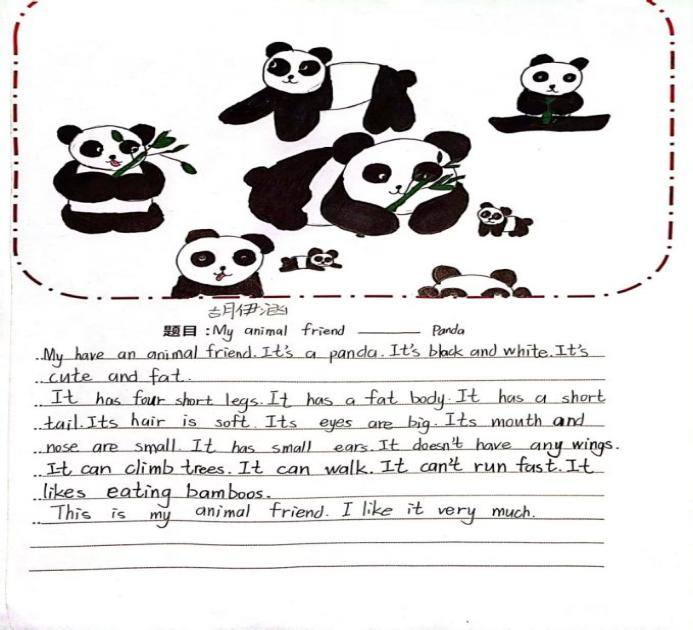 胡伊涵
题目:My animal friend ——— Panda
My have an animal friend. It's a panda. It's black and white. It's
cute and fat.
It has four short legs. It has a fat body. It has a short
tail. Its hair is soft. Its eyes are big. Its mouth and
nose are small. It has small ears. It doesn't have any wings.
It can climb trees. It can walk. It can't run fast. It
likes eating bamboos.
This is my animal friend. I like it very much.